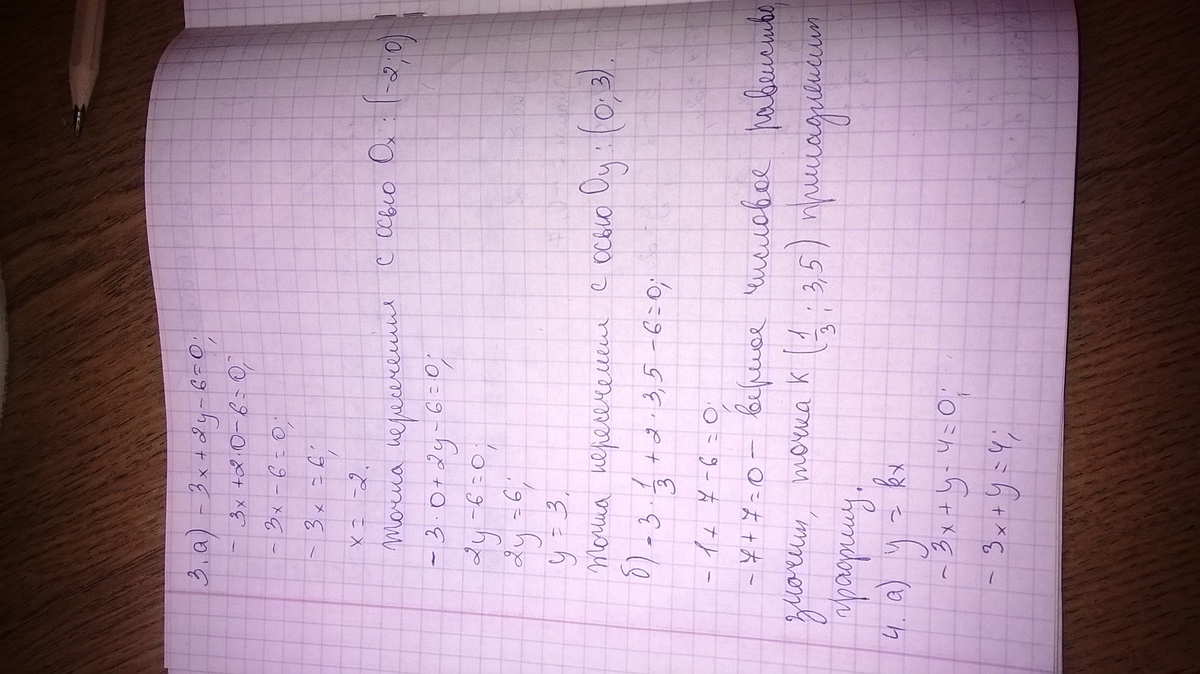 3. а) - 3x + 2y - 6 = 0;
- 3x + 2·0 - 6 = 0;
- 3x - 6 = 0;
- 3x = 6;
x = -2.
Точка пересечения с осью Ox: (-2; 0)
- 3 · 0 + 2y - 6 = 0;
2y - 6 = 0;
2y = 6;
y = 3.
Точка пересечения с осью Oy: (0; 3).
б) - 3 · 1/3 + 2 · 3,5 - 6 = 0;
- 1 + 7 - 6 = 0;
- 7 + 7 = 0 - верное числовое равенство,
значит, точка K (1/3; 3,5) принадлежит
графику.
4. а) y = kx
- 3x + y - 4 = 0;
- 3x + y = 4;